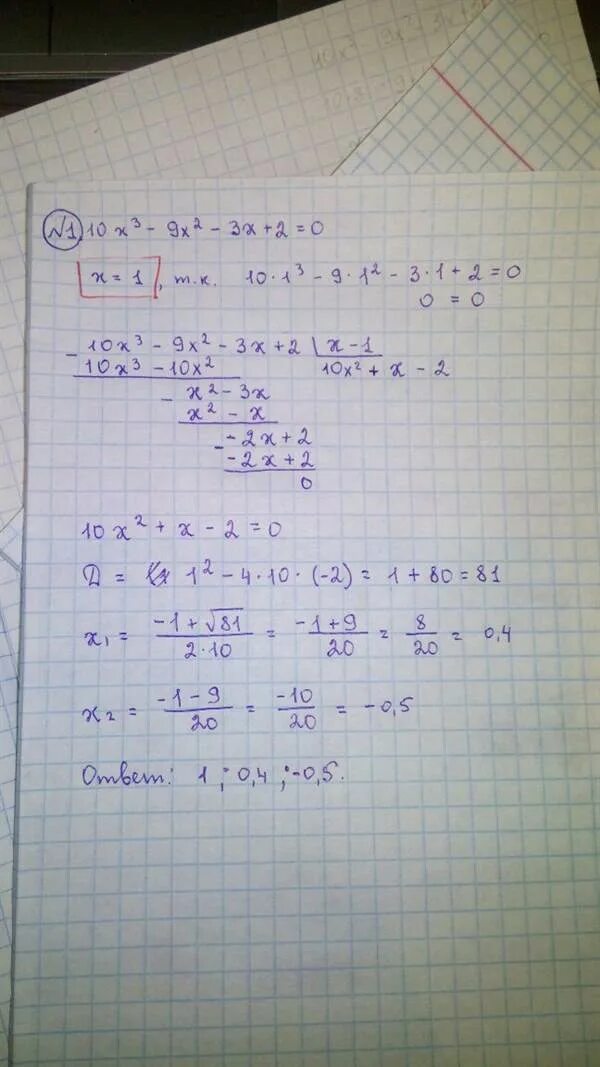 №1. 10x³ - 9x² - 3x + 2 = 0
x = 1, т.к. 10·1³ - 9·1² - 3·1 + 2 = 0
0 = 0
- 10x³ - 9x² - 3x + 2 | x - 1
10x³ - 10x² 10x² + x - 2
- x² - 3x
x² - x
- -2x + 2
-2x + 2
0
10x² + x - 2 = 0
D = 1² - 4·10·(-2) = 1 + 80 = 81
x₁ = (-1 + √81)/(2·10) = (-1+9)/20 = 8/20 = 0,4
x₂ = (-1 - 9)/20 = -10/20 = -0,5
Ответ: 1; 0,4; -0,5.